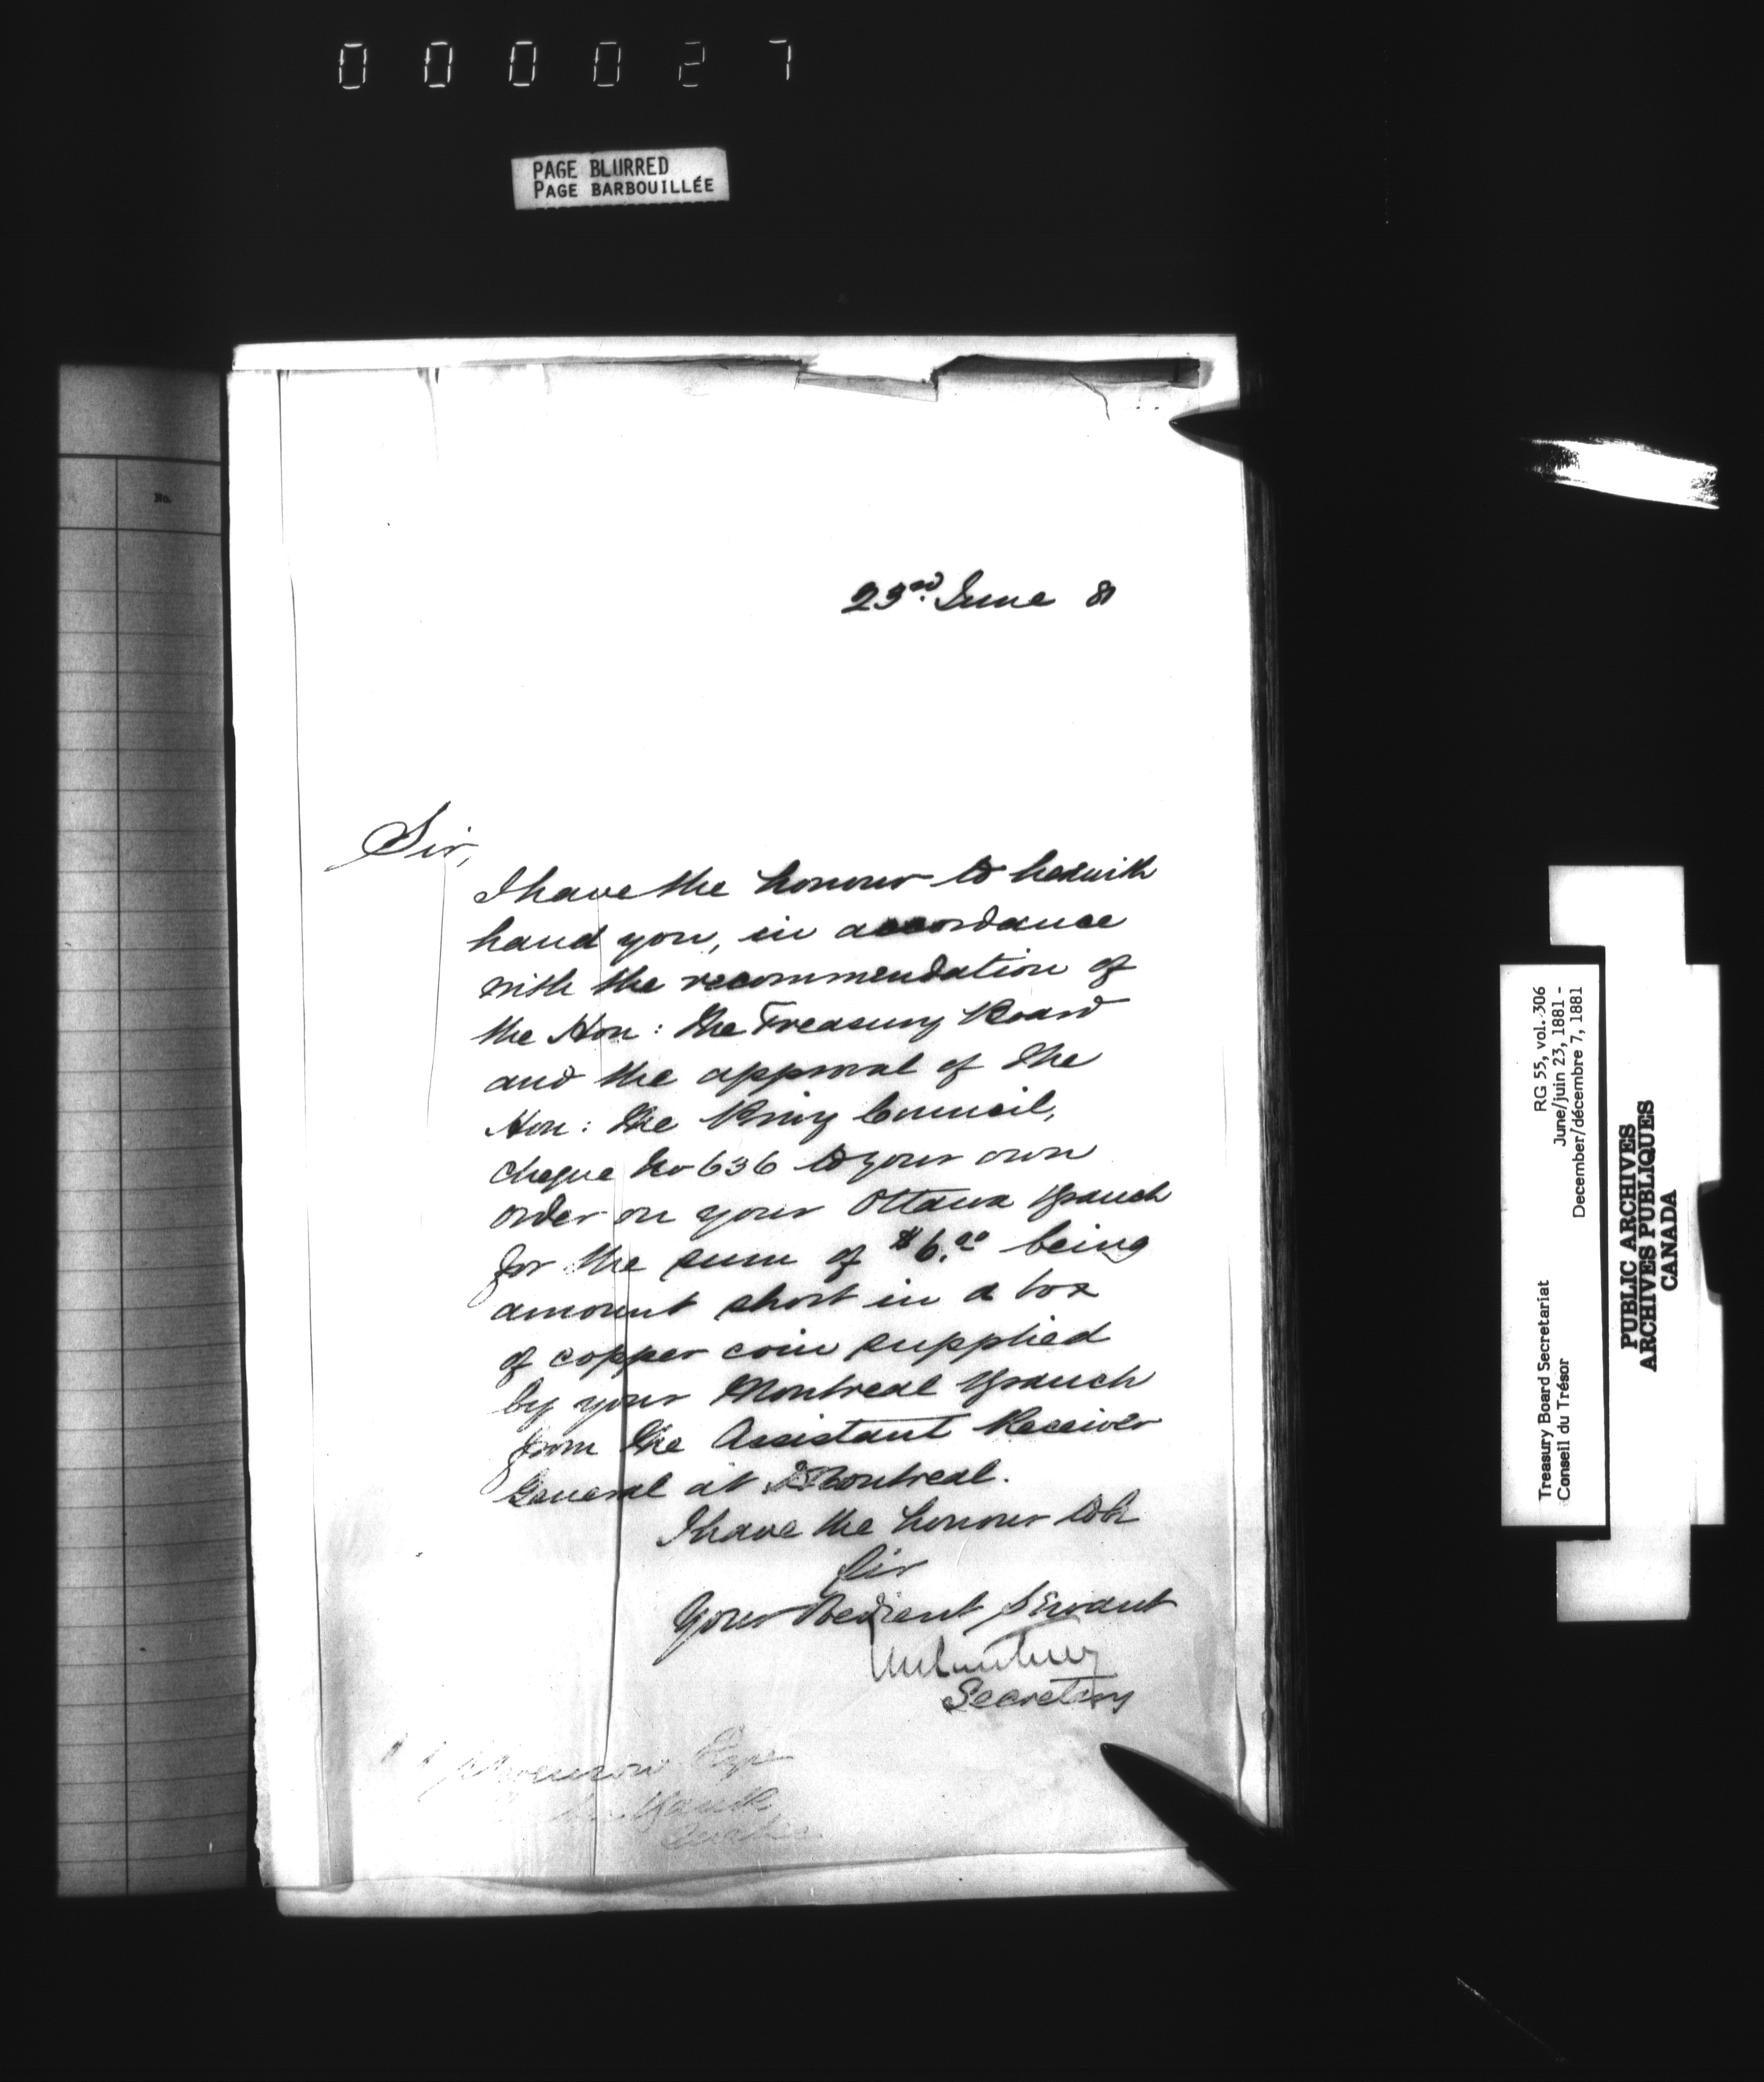 000027
PAGE BLURRED
PAGE BARBOUILLÉE
No.
23rd. June 81
Sir,
I have the honour to herewith
hand you, in accordance
with the recommendation of
the Hon: the Treasury Board
and the approval of the
Hon: the Privy Council,
cheque No 636 to your own
order on your Ottawa Branch
for the sum of $6. being
amount short in a box
of copper coin supplied
by your Montreal Branch
from the Assistant Receiver
General at Montreal.
I have the honour to be
Sir
Your Obedient Servant
Secretary
Stevenson Esqr
Bank
Quebec
RG 55, vol. 306
June/juin 23, 1881 -
December/décembre 7, 1881
Treasury Board Secretariat
Conseil du Trésor
PUBLIC ARCHIVES
ARCHIVES PUBLIQUES
CANADA